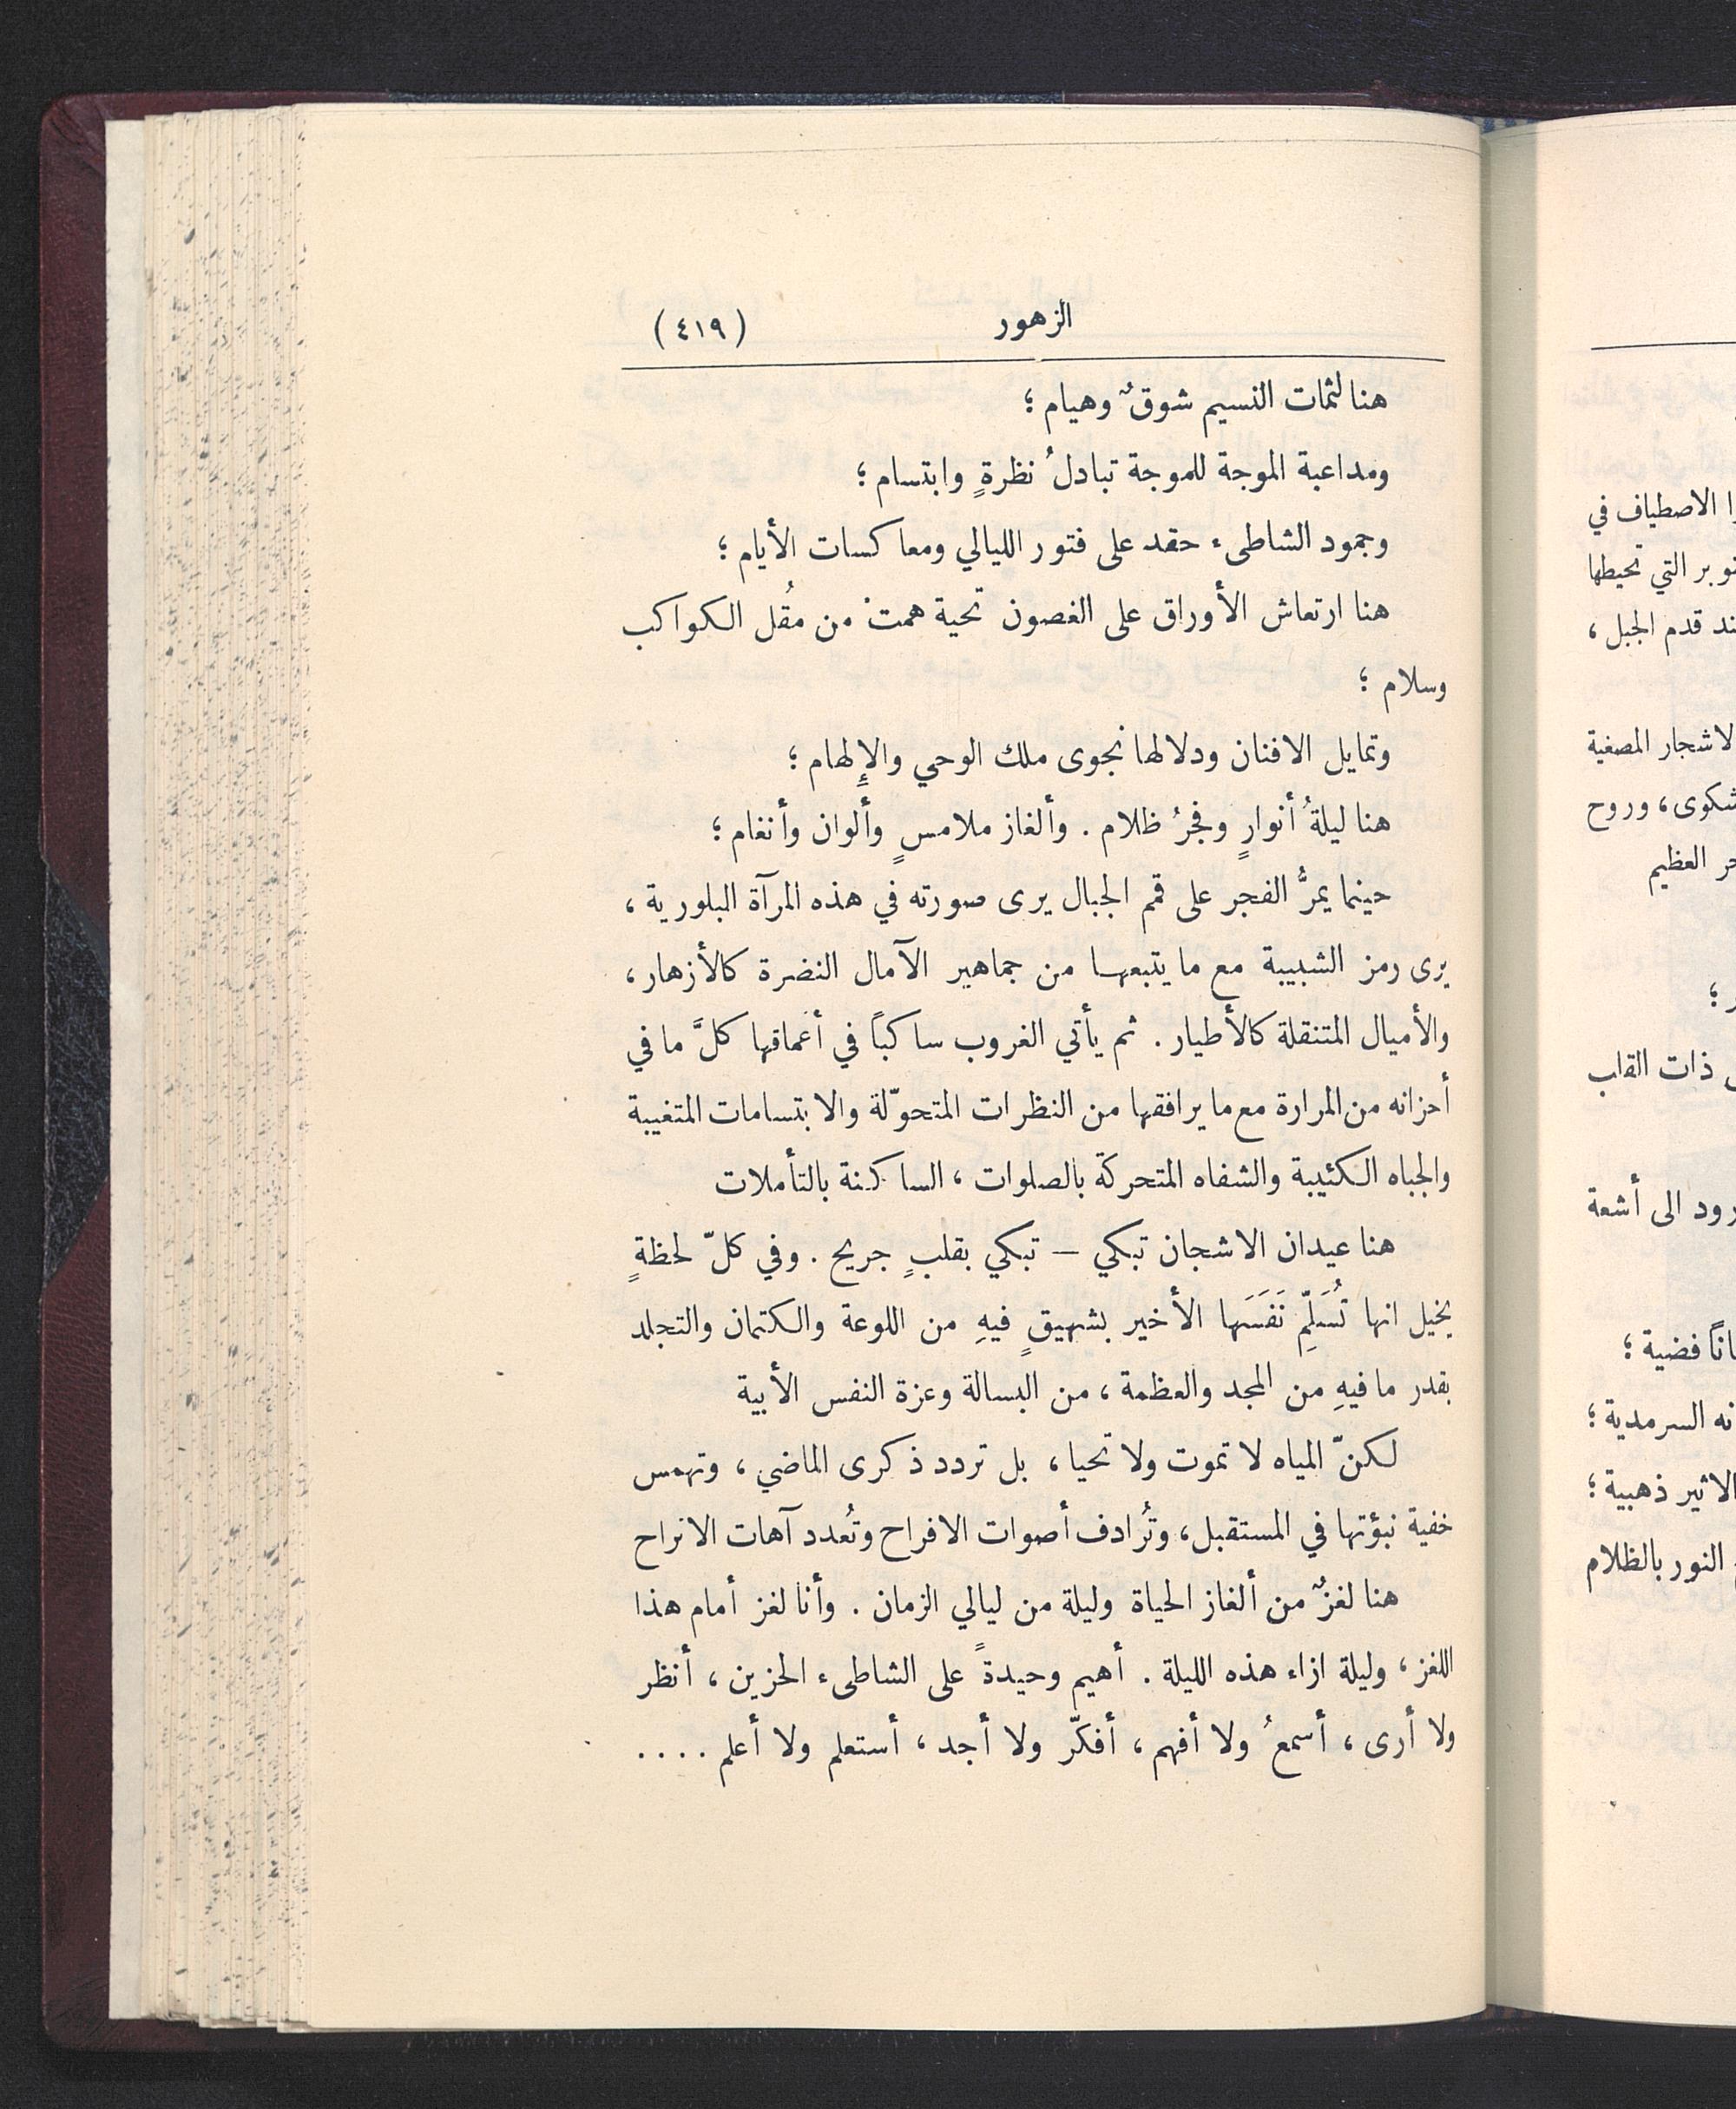 الزهور
(٤١٩)
هنا لثمات النسيم شوقٌ وهيام ؛
ومداعبة الموجة للموجة تبادلُ نظرةٍ وابتسام ؛
وجمود الشاطىء حقد على فتور الليالي ومعاكسات الأيام ؛
هنا ارتعاش الأوراق على الغصون تحية همت من مُقل الكواكب
وسلام ؛
وتمايل الافنان ودلالها نجوى ملك الوحي والإِلهام ؛
هنا ليلةُ أنوارٍ وفجرُ ظلام . وألغاز ملامسٍ وألوان وأنغام ؛
حينما يمرُّ الفجر على قمم الجبال يرى صورته في هذه المرآة البلورية ،
يرى رمز الشبيبة مع ما يتبعها من جماهير الآمال النضرة كالأزهار ،
والأميال المتنقلة كالأطيار . ثم يأتي الغروب ساكباً في أعماقها كلَّ ما في
أحزانه من المرارة مع ما يرافقها من النظرات المتحوّلة والابتسامات المتغيبة
والجباه الكئيبة والشفاه المتحركة بالصلوات ، الساكنة بالتأملات
هنا عيدان الاشجان تبكي – تبكي بقلبٍ جريح . وفي كلّ لحظةٍ
يخيل انها تُسَلِّم نَفَسَها الأخير بشهيقٍ فيهِ من اللوعة والكتمان والتجلد
بقدر ما فيهِ من المجد والعظمة ، من البسالة وعزة النفس الأبية
لكنّ المياه لا تموت ولا تحيا ، بل تردد ذكرى الماضي ، وتهمس
خفية نبؤتها في المستقبل ، وتُرادف أصوات الافراح وتُعدد آهات الاتراح
هنا لغزٌ من ألغاز الحياة وليلة من ليالي الزمان . وأنا لغز أمام هذا
اللغز ، وليلة ازاء هذه الليلة . أهيم وحيدةً على الشاطىء الحزين ، أنظر
ولا أرى ، أسمعُ ولا أفهم ، أفكّر ولا أجد ، أستعلم ولا أعلم ....
الاصطياف في
التي تحيطها
قدم الجبل ،
المصغية
وروح
العظيم
؛
ذات القلب
الى أشعة
فضية ؛
السرمدية ؛
الاثير ذهبية ؛
النور بالظلام